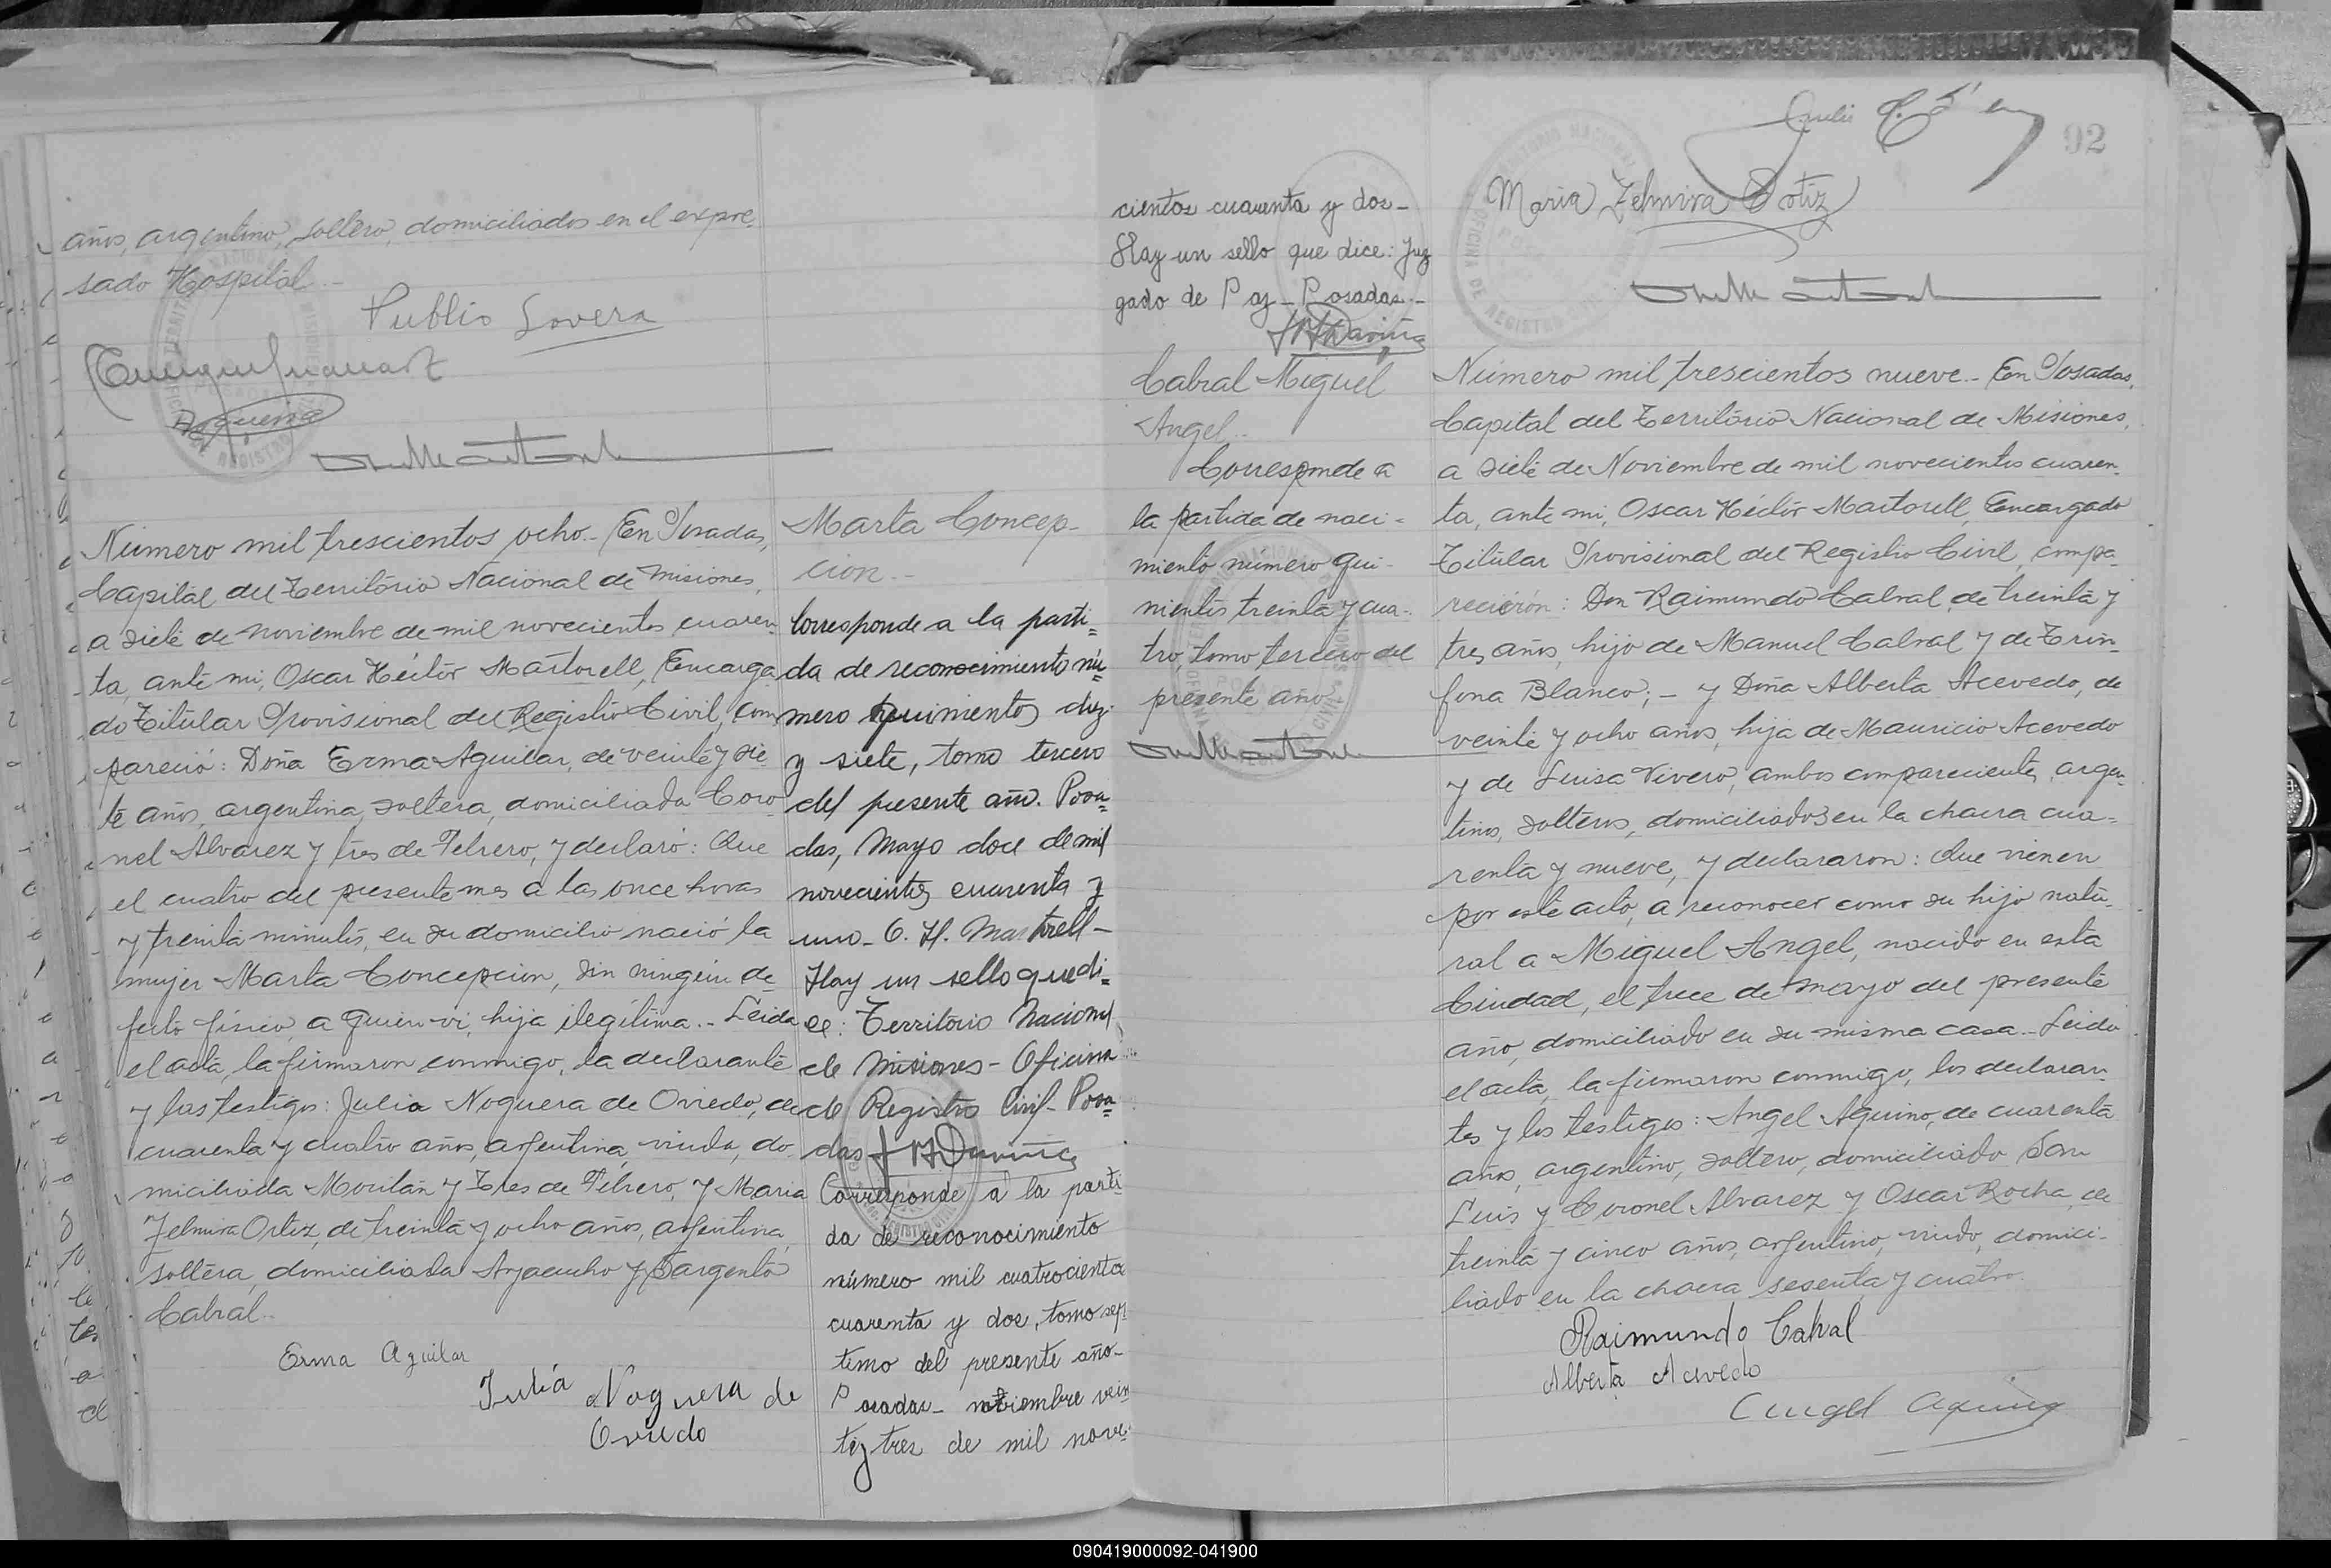 años, argentino, soltero, domiciliados en el expre
sado Hospital.-
Publio Lovera
Número mil trescientos ocho.- En Posadas,
Capital del Territorio Nacional de Misiones,
a siete de noviembre de mil novecientos cuaren
ta, ante mi, Oscar Héctor Martorell, Encarga
do Titular Provisional del Registro Civil, com
pareció: Doña Erma Aguilar, de veinte y sie
te años, argentina, soltera, domiciliada Coro
nel Alvarez y tres de Febrero, y declaró: Que
el cuatro del presente mes a las once horas
y treinta minutos, en su domicilio nació la
mujer Marta Concepcion, sin ningún de
fecto físico, a quien vi, hija ilegítima.- Leida
el acta, la firmaron conmigo, la declarante
y los testigos: Julia Noguera de Oviedo, de
cuarenta y cuatro años, argentina, viuda, do
miciliada Moritán y Tres de Febrero, y Maria
Zelmira Ortiz, de treinta y ocho años, argentina,
soltera, domiciliada Ayacucho y Sargento
Cabral.-
Erma Aguilar
Julia Noguera de
Oviedo
Marta Concep-
cion.-
Corresponde a la parti=
da de reconocimiento nú=
mero quinientos diez
y siete, tomo tercero
del presente año. Posa=
das, Mayo doce de mil
novecientos cuarenta y
uno_ O. H. Martorell-
Hay un sello que di=
ce: Territorio Nacional
de Misiones- Oficina
de Registro Civil- Posa=
das
Corresponde a la parti
da de reconocimiento
número mil cuatrocientos
cuarenta y dos, tomo sép
timo del presente año-
Posadas- noviembre vein
te y tres de mil nove-
cientos cuarenta y dos-
Hay un sello que dice: Juz
gado de Paz - Posadas.-
Cabral Miguel
Angel.-
Corresponde a
la partida de naci-
miento número qui-
nientos treinta y cua-
tro, tomo tercero del
presente año
92
Maria Zelmira Ortiz
Número mil trescientos nueve.- En Posadas,
Capital del Territorio Nacional de Misiones,
a siete de Noviembre de mil novecientos cuaren-
ta, ante mi, Oscar Héctor Martorell, Encargado
Titular Provisional del Registro Civil, compa-
recieron: Don Raimundo Cabral, de treinta y
tres años, hijo de Manuel Cabral y de Trin-
fona Blanco; - y Doña Alberta Acevedo, de
veinte y ocho años, hija de Mauricio Acevedo
y de Luisa Vivero, ambos comparecientes, argen-
tinos, solteros, domiciliados en la chacra cua-
renta y nueve, y declararon: Que vienen
por este acto, a reconocer como su hijo natu-
ral a Miguel Angel, nacido en esta
Ciudad, el trece de mayo del presente
año, domiciliado en su misma casa.- Leida
el acta, la firmaron conmigo, los declaran-
tes y los testigos: Angel Aquino, de cuarenta
años, argentino, soltero, domiciliado San
Luis y Coronel Alvarez y Oscar Rocha, de
treinta y cinco años, argentino, viudo, domici-
liado en la chacra sesenta y cuatro.
Raimundo Cabral
Alberta Acevedo
Angel Aquino
090419000092-041900